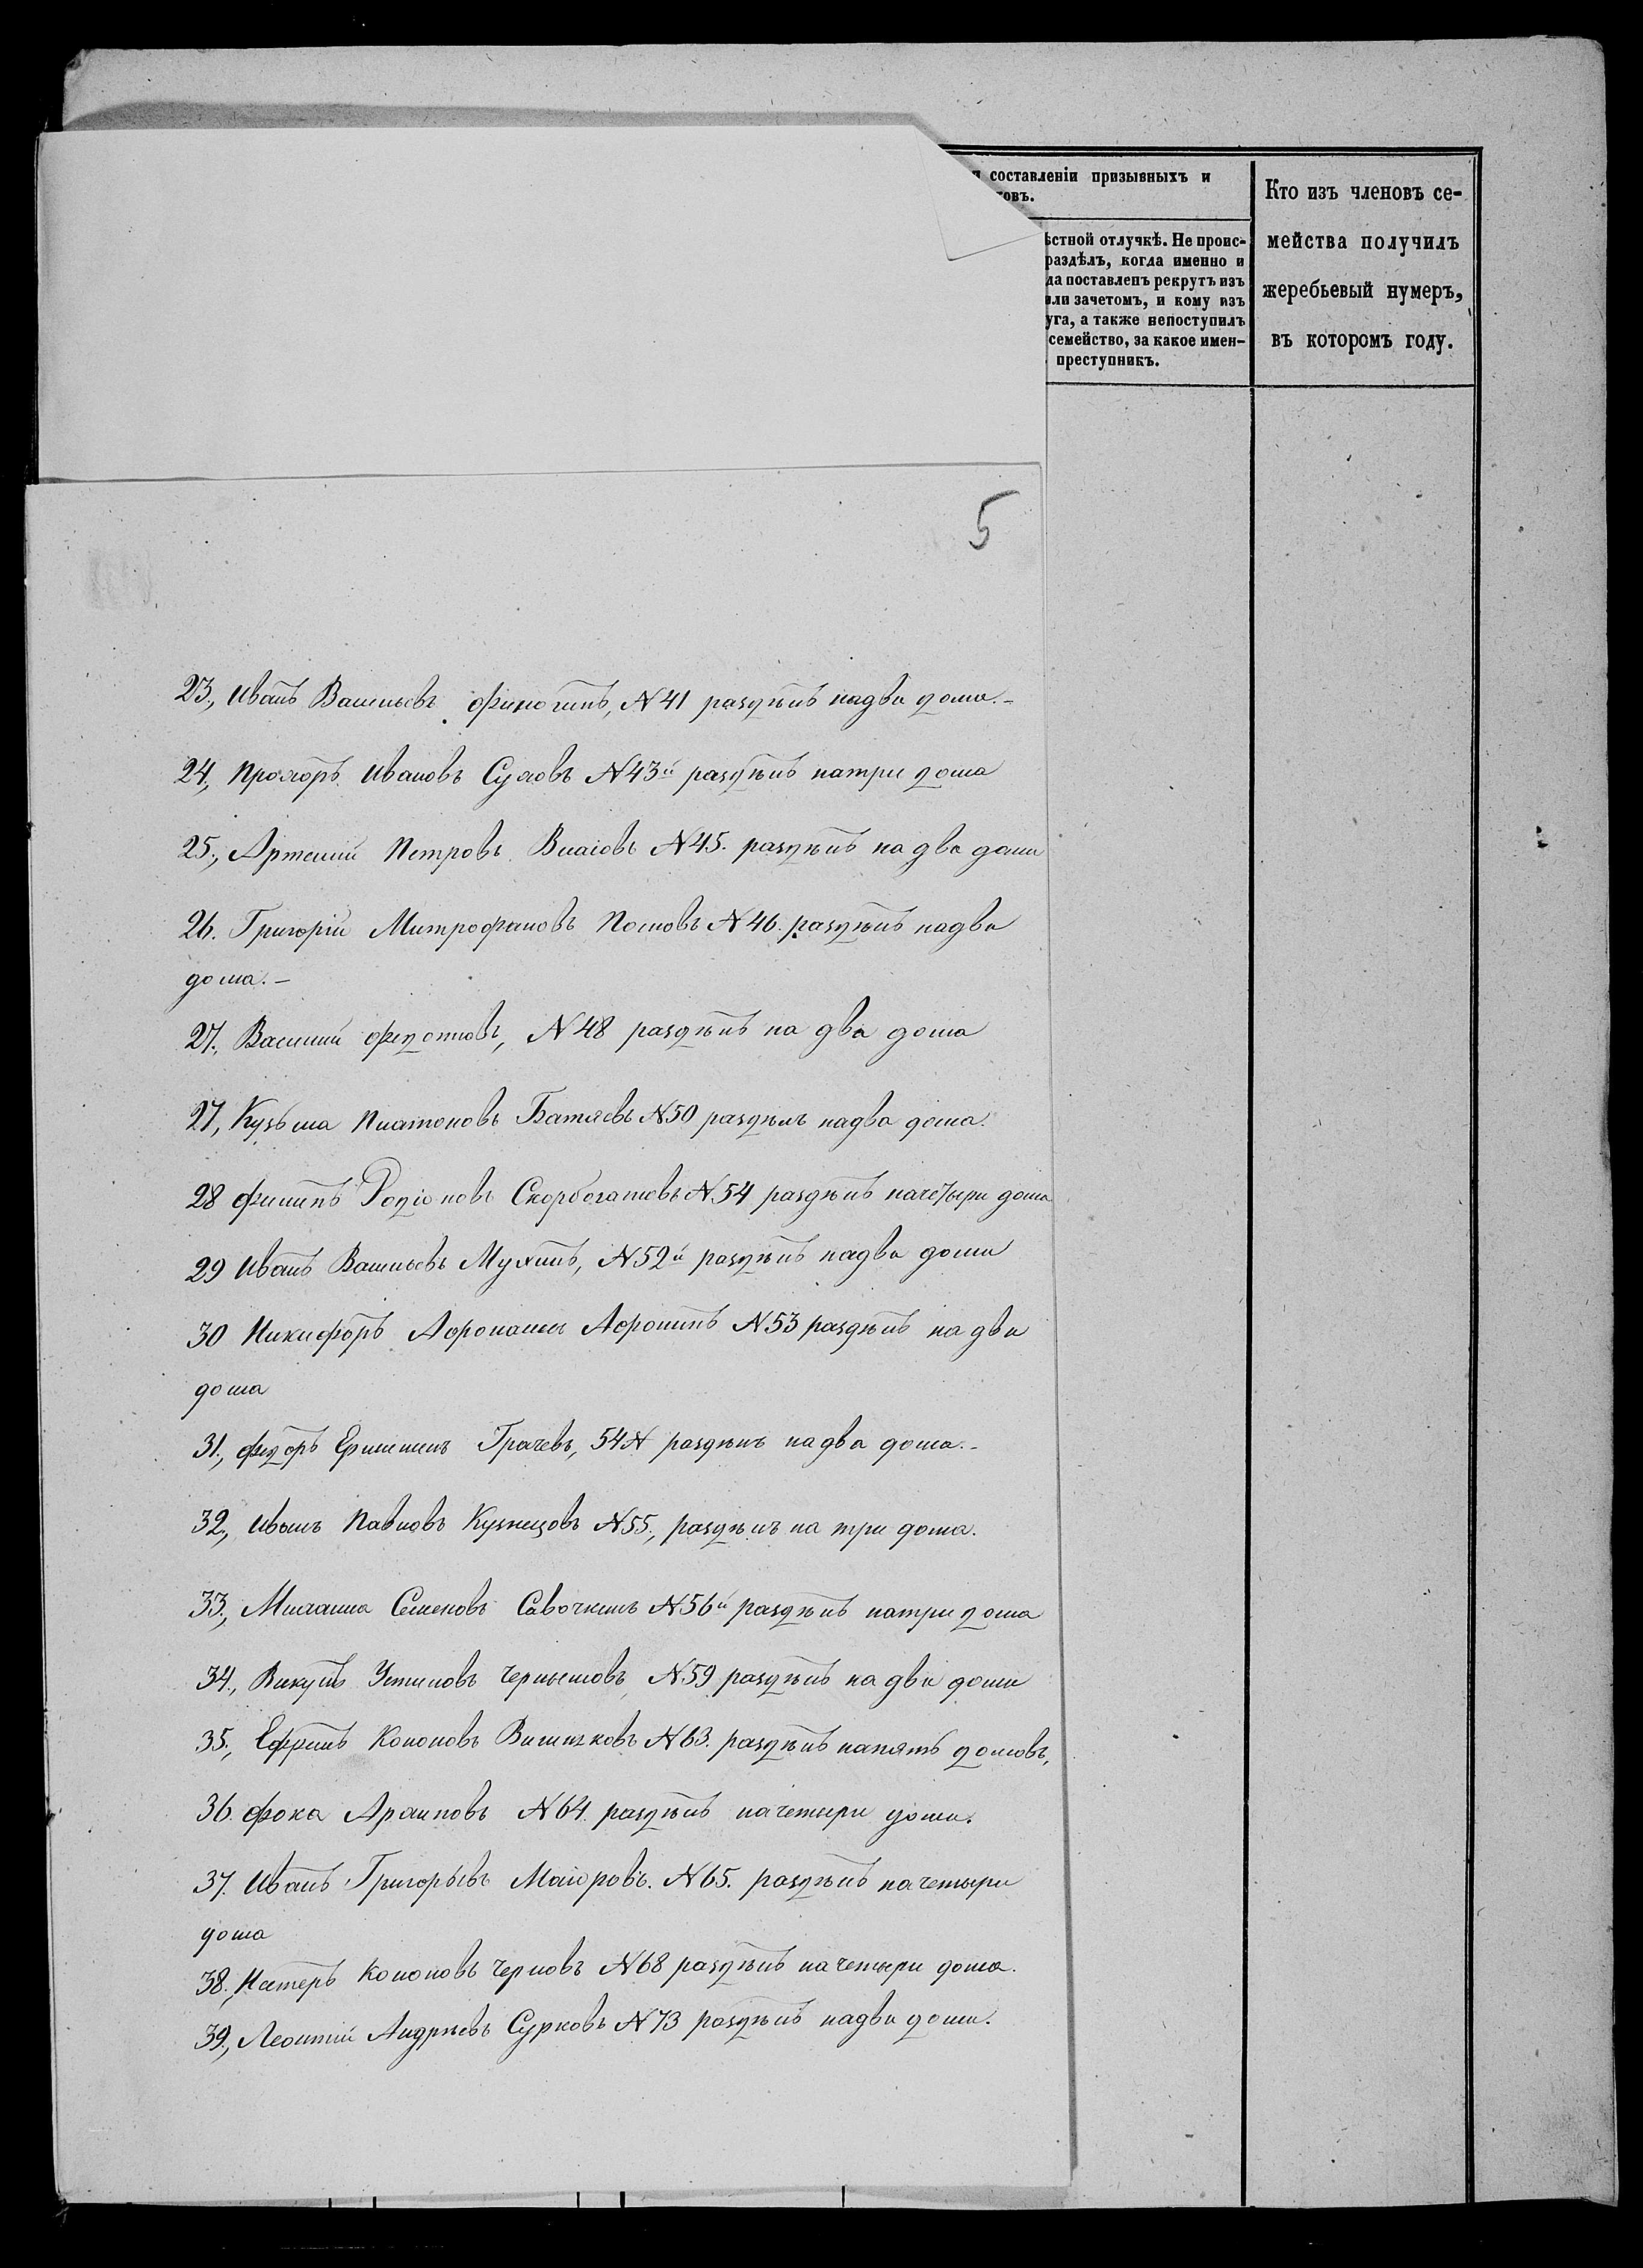 п составленіи призывныхъ и
товъ.
ѣстной отлучкѣ. Не проис-
раздѣлъ, когда именно и
да поставленъ рекрутъ изъ
или зачетомъ, и кому изъ
уга, а также непоступилъ
семейство, за какое имен-
преступникъ.
Кто изъ членовъ се-
мейства получилъ
жеребьевый нумеръ,
въ которомъ году.
5
23., Иванъ Васильевъ Финогинъ, N 41 раздѣлъ надва дома.-
24., Прохоръ Ивановъ Суховъ N 43й раздѣлъ натри дома
25., Артемій Петровъ Власовъ N 45. раздѣлъ на два дома
26. Григорій Митрофановъ N 46. раздѣлъ надва
дома.-
27., Василій Федотовъ, N 48 раздѣлъ на два дома
27, Кузьма Платоновъ Батяевъ N 50 раздѣлъ надва дома.
28 Филипъ Родіоновъ Скорбогатовъ N. 54 раздѣлъ на четыри дома
29 Иванъ Васильевъ Мухинъ, N 52й раздѣлъ надва дома
30 Никифоръ Афонасьи Афонинъ N 53 раздѣлъ на два
дома
31., Федоръ Грачевъ, 54 N раздѣлъ на два дома.-
32., Иванъ Павловъ Кузнецовъ N 55., раздѣлъ на три дома.
33., Михаила Семеновъ Савочкинъ N 56й раздѣлъ натри дома
34., Викулъ Устиновъ Чернышовъ N 59 раздѣлъ на два дома
35., Ефимъ Кононовъ N 63. раздѣлъ напять домовъ,
36. Фока Архиповъ N 64. раздѣлъ на четыри дома.
37. Иванъ Григорьевъ Маіоровъ. N 65. раздѣлъ на четыри
дома
38., Нестеръ Кононовъ Черновъ N 68 раздѣлъ на четыри дома.
39., Леонтій Андрѣевъ Сурковъ N 73 раздѣлъ надва дома.